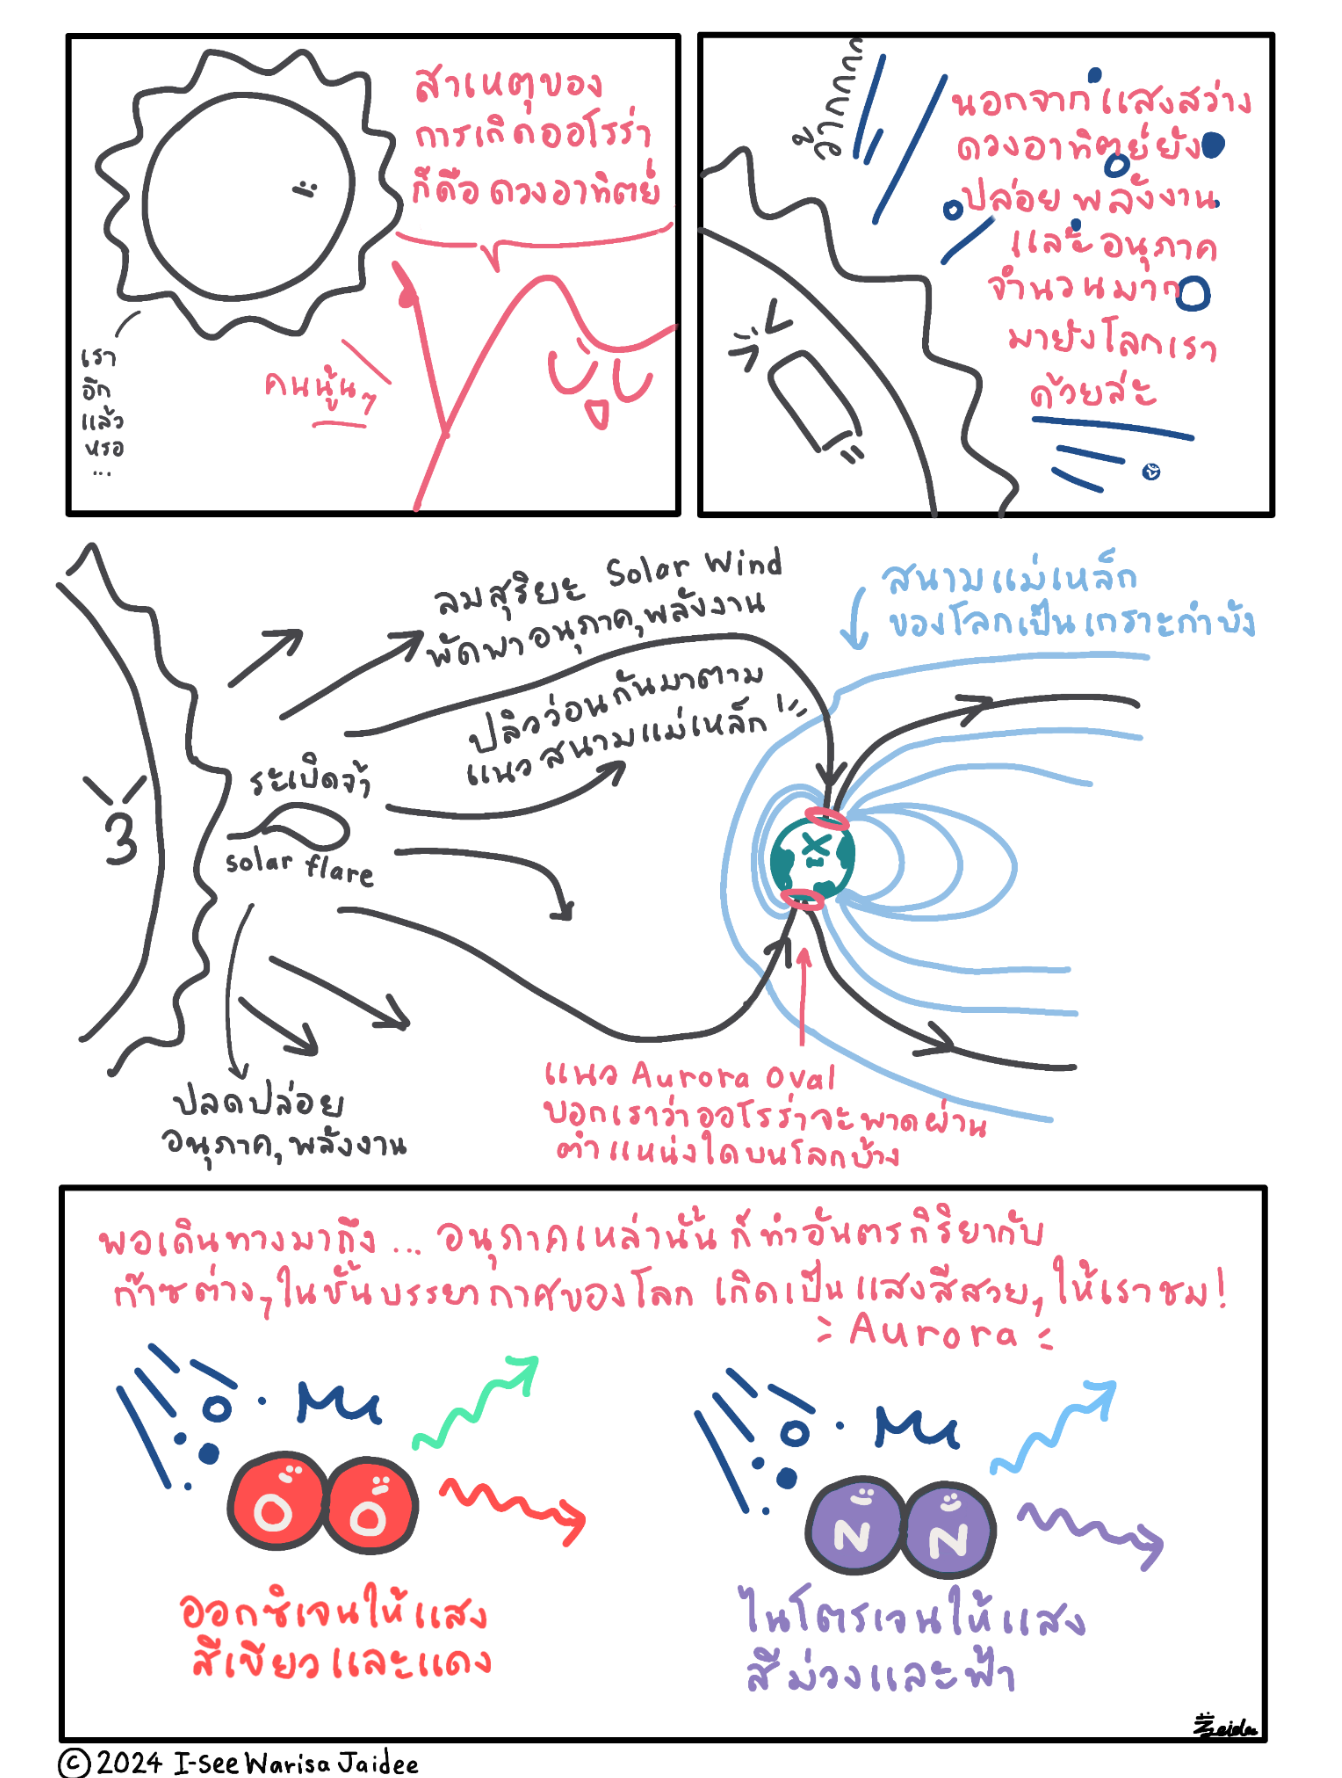 สาเหตุของ
การเกิดออโรร่า
ก็คือ ดวงอาทิตย์
เรา
อีก
แล้ว
หรอ
...
คนนู้นๆ
ว้ากกกก
นอกจากแสงสว่าง
ดวงอาทิตย์ยัง
ปล่อย พลังงาน
และ อนุภาค
จำนวนมาก
มายังโลกเรา
ด้วยล่ะ
ลมสุริยะ Solar Wind
พัดพาอนุภาค, พลังงาน
ปลิวว่อนกันมาตาม
แนวสนามแม่เหล็ก
สนามแม่เหล็ก
ของโลกเป็นเกราะกำบัง
ระเบิดจ้า
solar flare
ปลดปล่อย
อนุภาค, พลังงาน
แนว Aurora Oval
บอกเราว่าออโรร่าจะพาดผ่าน
ตำแหน่งใดบนโลกบ้าง
พอเดินทางมาถึง ... อนุภาคเหล่านั้น ก็ทำอันตรกิริยากับ
ก๊าซต่างๆ ในชั้นบรรยากาศของโลก เกิดเป็นแสงสีสวยๆ ให้เราชม!
Aurora
O O
N N
ออกซิเจนให้แสง
สีเขียวและแดง
ไนโตรเจนให้แสง
สีม่วงและฟ้า
Jaidee
© 2024 I-See Warisa Jaidee